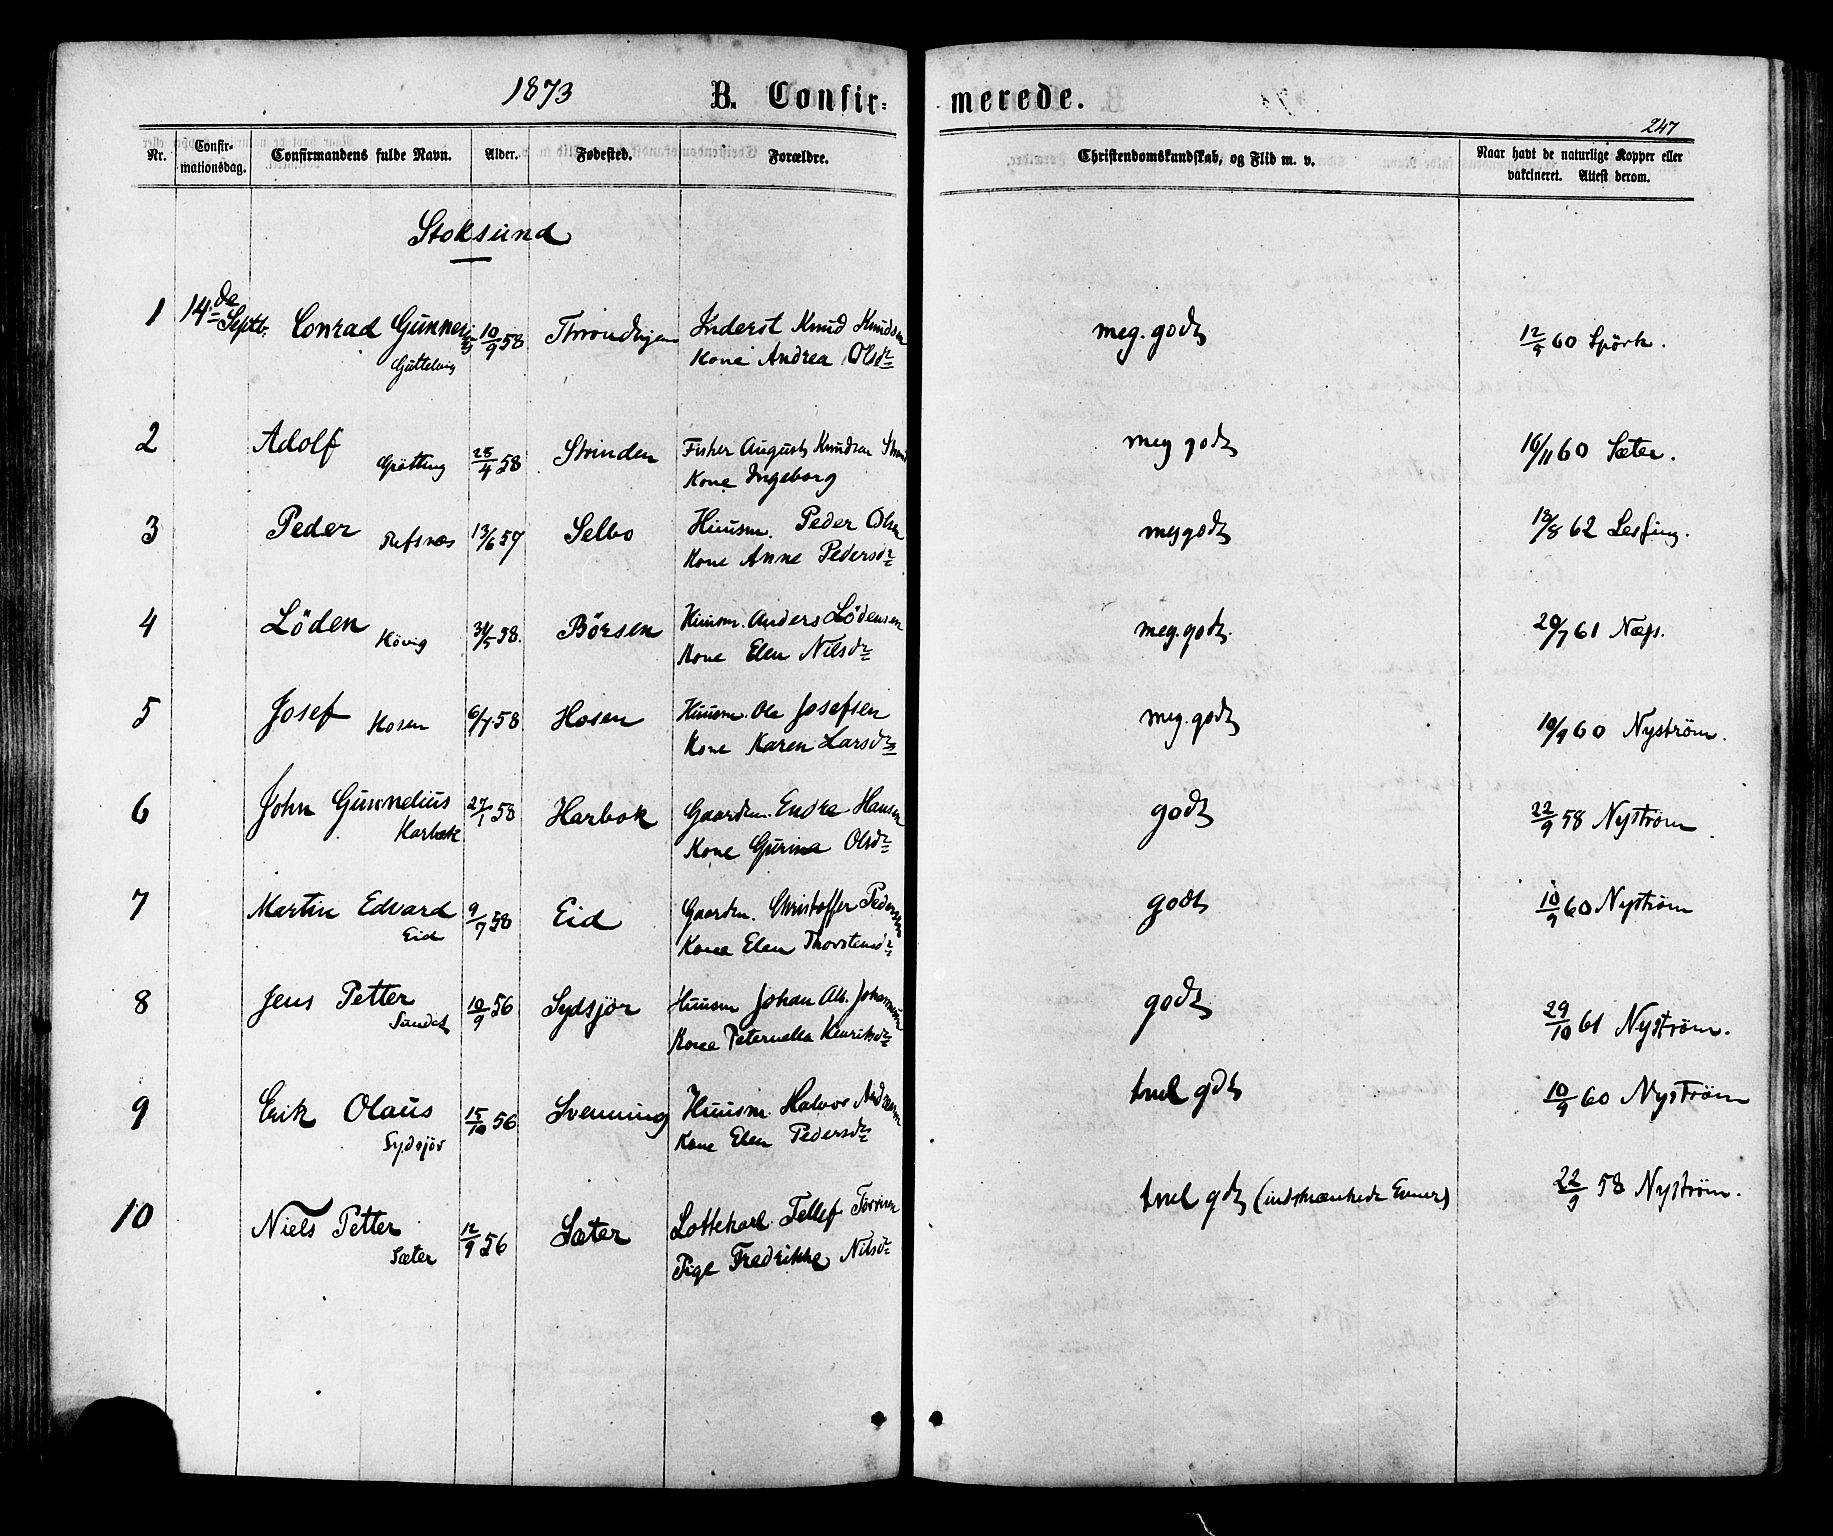 1873 B. Confirmerede.
247
Nr. Confirmationsdag. Confirmandens fulde Navn. Alder. Fødested. Forældre. Christendomskundskab, og Flid m. v. Naar havt de naturlige Kopper eller vakcineret. Attest derom.
Stoksund
1 14de Septb. Conrad 10/9 58 Inderst Knud Knudsen meg. godt 12/9 60 Spörk.
Kone Andrea Olsdr
2 Adolf Grötting 28/4 58 Strinden Fisker August Knudsen meg godt 16/11 60 Sæter.
Kone Ingeborg
3 Peder Refsnæs 13/6 57 Selbo Huusm. Peder Olsen meg godt 18/8 62
Kone Anne Pedersdr
4 Löden Hövig 31/5 58. Börsen Huusm. Anders Lödensen meg. godt. 20/7 61 Næss.
Kone Elen Nilsdr
5 Josef Hosen 6/4 58 Hosen Huusm. Ole Josefsen meg. godt 10/9 60 Nyström.
Kone Karen Larsdr
6 John Gunnelius Harbak 27/1 58 Harbak Gaardm. Endre Hansen godt 22/9 58 Nyström.
Kone Gurina Olsdr
7 Martin Edvard Eid 9/7 58 Eid Gaardm. Christoffer Pedersen godt 10/9 60 Nyström
Kone Elen Thorstensdr
8 Jens Petter Sundet 10/9 56 Sydsjör Huusm Johan Alb. Johannsen godt 29/10 61 Nyström.
Kone Peternella Henriksdr
9 Erik Olaus Sydsjör 15/10 56 Svenning Huusm. Halvor Andersen tvul godt 10/9 60 Nyström
Kone Elen Pedersdr
10 Niels Petter Sæter 12/9 56 Sæter Lottekarl Tellef tvul godt (indskrænkede Evner) 22/9 58 Nyström.
Pige Fredrikke Nilsdr